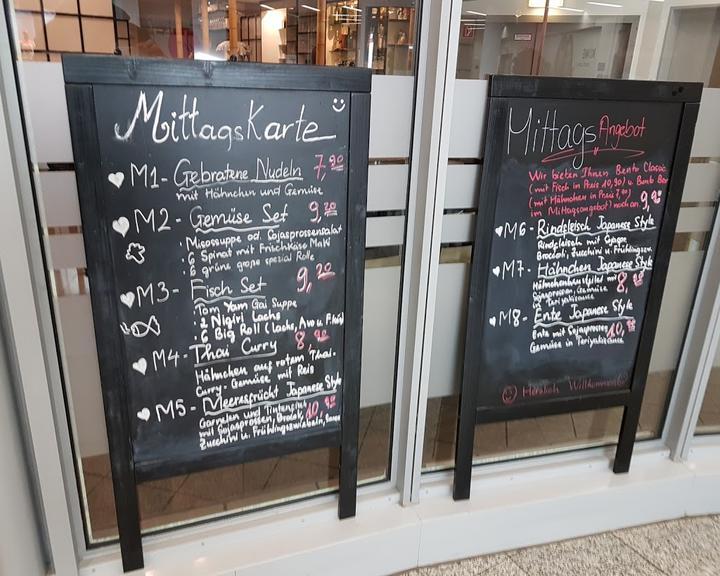 MittagsKarte
M1- Gebratene Nudeln 7,90
mit Hähnchen und Gemüse
M2 - Gemüse Set 9,20
· Misosuppe od. Sojasprossensalat
· 6 Spinat mit Frischkäse Maki
· 6 grüne grape spezial Rolle
M3 - Fisch Set 9,20
Tom Yam Gai Suppe
· 2 Nigiri Lachs
· 6 Big Roll (Lachs, Avo u.
M4 - Thai Curry 8,90
Hähnchen auf rotem Thai-
Curry - Gemüse mit Reis
M5 - Meeresfrücht Japanese Style
Garnelen und Tintenfisch 10,90
mit Sojasprossen, Brokoli,
Zucchini u. Frühlingszwiebeln,
Mittags Angebot
Wir bieten Ihnen Bento Classic
(mit Fisch in Preis 10,90) u Bento Box
(mit Hähnchen in Preis
im Mittagsangebot) noch an. 9,90
M6 - Rindfleisch Japanese Style
Rindfleisch mit
Broccoli, Zucchini u. Frühlingszw
M7 - Hähnchen Japanese Style
Hähnchen mit 8,90
Sojaprossen, Gemüse
in Teriyakisauce
M8 - Ente Japanese Style
Ente mit Sojaprossen 10,90
Gemüse in Teriyakisauce
Herzlich Willkommen